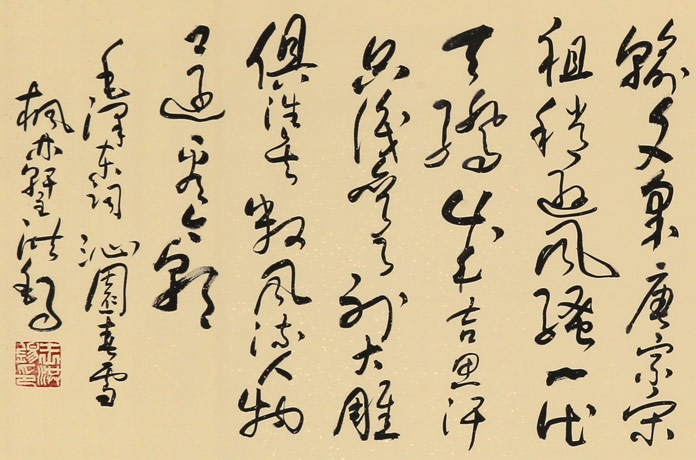 输文采唐宗宋
祖稍逊风骚一代
天骄成吉思汗
只識弯弓射大雕
俱往矣数风流人物
还看今朝
毛泽东词沁園春雪
枫